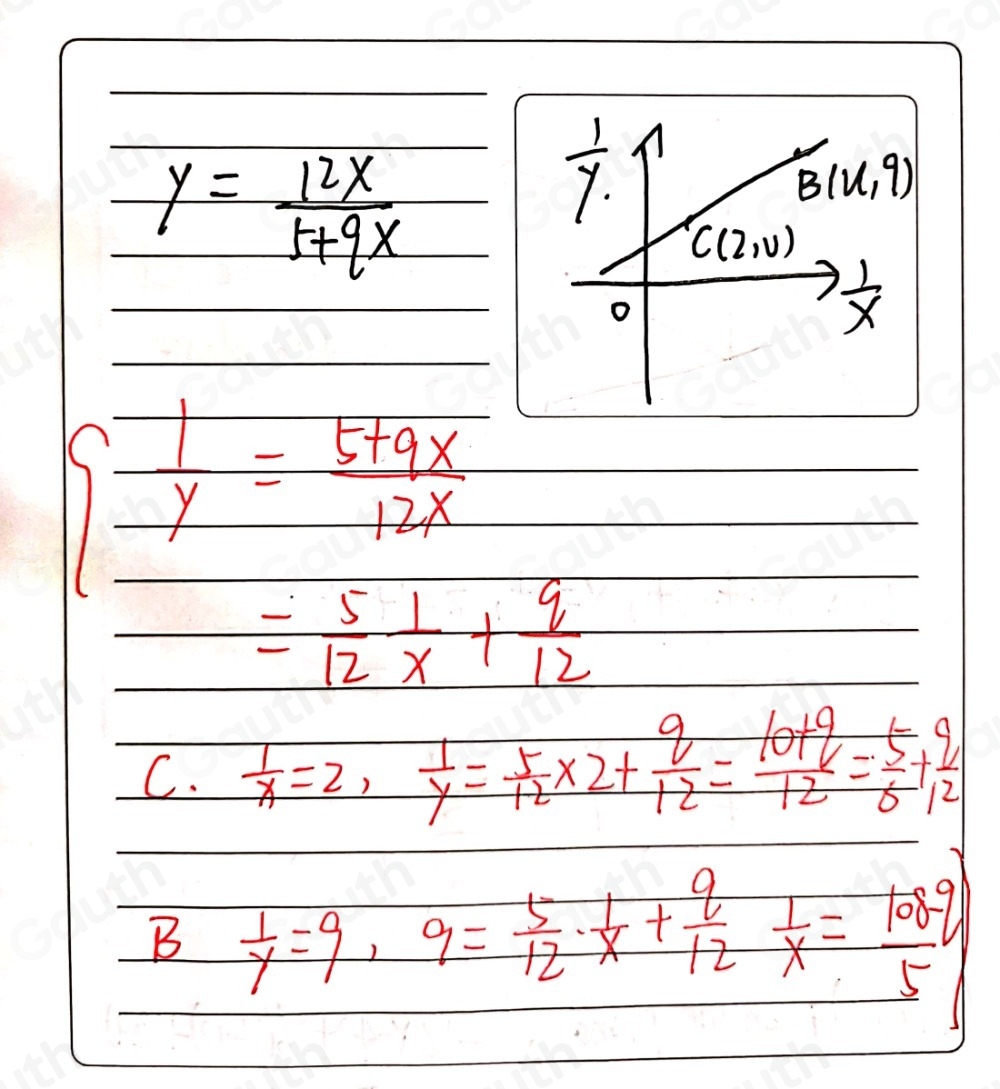 y = 12x / 5+qx
1/y.
B(u,9)
C(2,v)
0
1/x
1/y = 5+qx / 12x
= 5/12 1/x + q/12
C. 1/x = 2, 1/y = 5/12 × 2 + q/12 = 10+q/12 = 5/6 + q/12
B 1/y = 9, 9 = 5/12 · 1/x + q/12 1/x = 108-q/5
Gauth